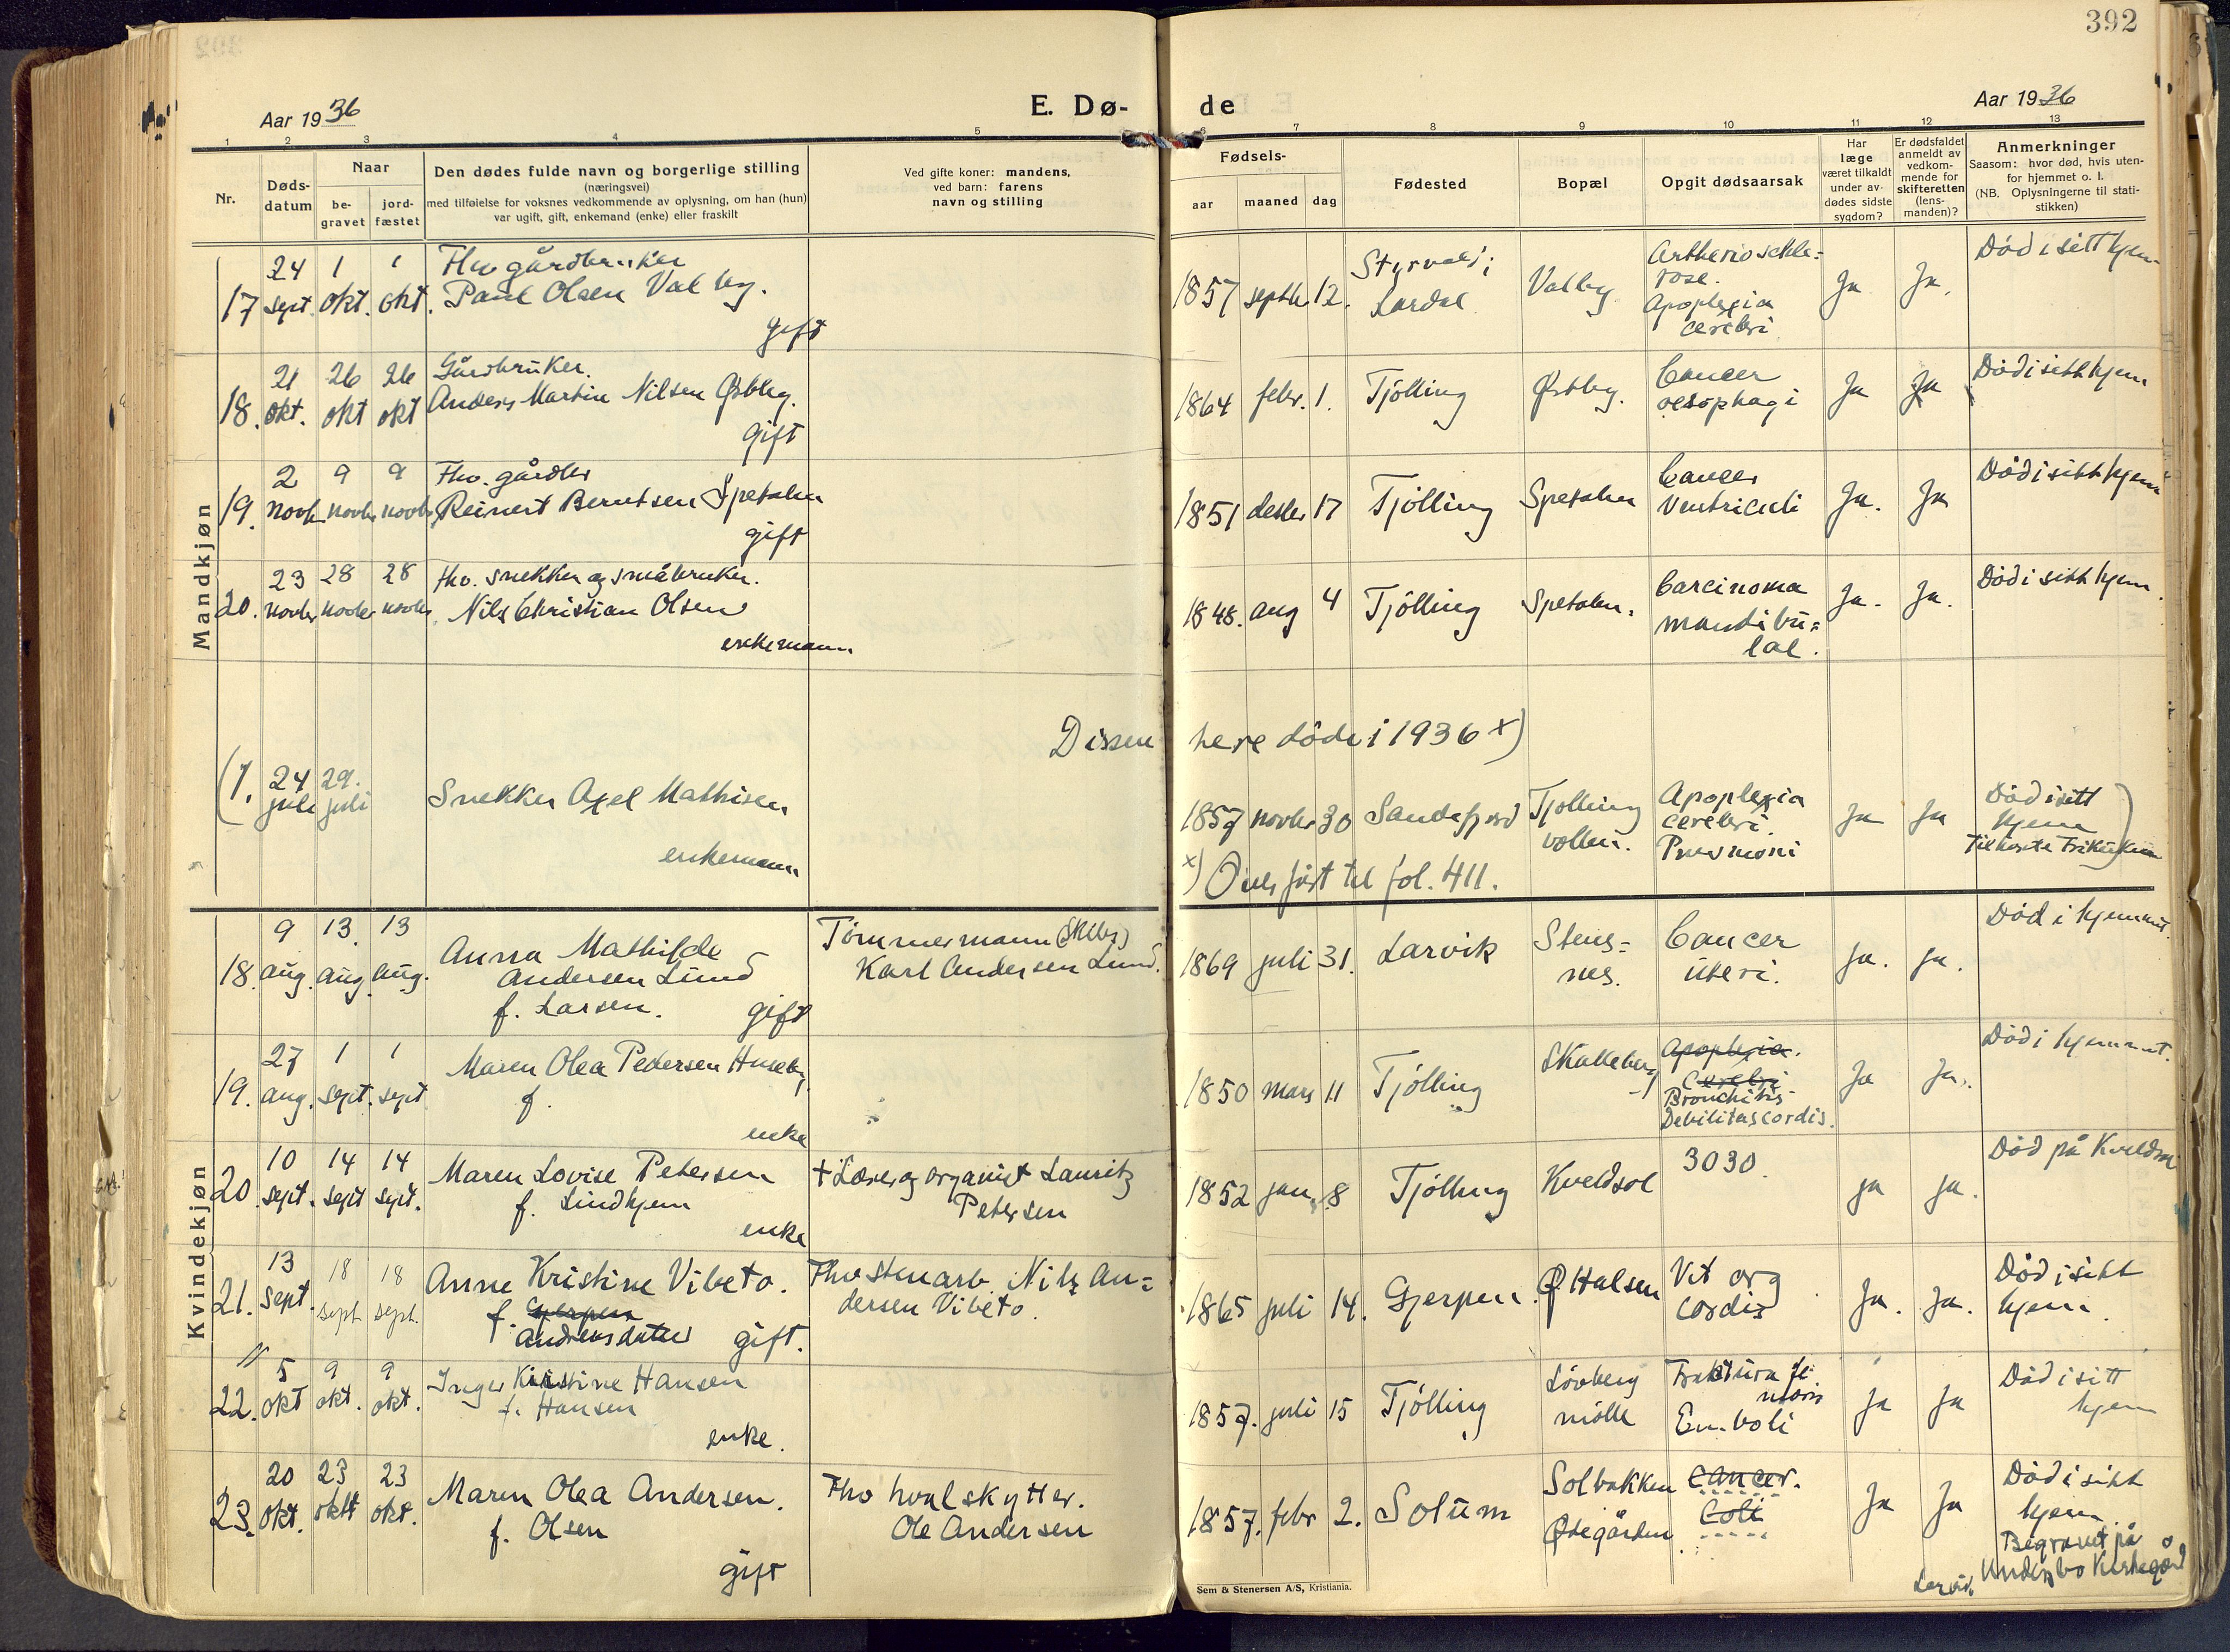 392
Aar 1936
E. Dø-
de
Aar 1936
1 2 3 4 5
6 7 8 9 10 11 12 13
Nr.
Døds-
datum
Naar
be-
gravet
jord-
fæstet
Den dødes fulde navn og borgerlige stilling
(næringsvei)
med tilføielse for voksnes vedkommende av oplysning, om han (hun)
var ugift, gift, enkemand (enke) eller fraskilt
Ved gifte koner: mandens,
ved barn: farens
navn og stilling
Fødsels-
aar maaned dag
Fødested
Bopæl
Opgit dødsaarsak
Har
læge
været tilkaldt
under av-
dødes sidste
sygdom?
Er dødsfaldet
anmeldt av
vedkom-
mende for
skifteretten
(lens-
manden)?
Anmerkninger
Saasom: hvor død, hvis uten-
for hjemmet o. l.
(NB. Oplysningerne til stati-
stikken)
Mandkjøn
17 24 sept. 1 okt. 1 okt.
Fhv gårdbruker
Paul Olsen Valby.
gift
1857 septbr 12.
Styrvold i
Lardal
Valby
Artherioschle-
rose.
Apoplexia
cerebri
Ja Ja.
Død i sitt hjem
18. 21 okt. 26 okt 26 okt
Gårdbruker.
Anders Martin Nilsen Østby.
gift
1864 febr. 1.
Tjølling
Østby.
Cancer
oesophagi
Ja Ja
Død i sitt hjem
19. 2 novbr 9 novbr 9 novbr
Fhv. gårdbr
Reinert Berntsen Spetalen
gift
1851 desbr 17
Tjølling
Spetalen
Cancer
Ventriculi
Ja. Ja
Død i sitt hjem
20. 23 novbr 28 novbr 28 novbr
fhv. snekker og småbruker.
Nils Christian Olsen
enkemann
1848. aug 4
Tjølling
Spetalen.
Carcinoma
mandibu-
lae.
Ja. Ja.
Død i sitt hjem.
Dissen
here døde i 1936 x)
(1. 24 juli 29. juli
Snekker Axel Mathisen
enkemann
1857 novbr 30
Sandefjord
Tjølling
vollen.
Apoplexia
cerebri.
Pnevmoni
Ja Ja
Død i sitt
hjem
Tilhørte Frikirken)
x) Overført til fol. 411.
Kvindekjøn
18. 9 aug. 13. aug. 13 aug.
Anna Mathilde
Andersen Lund
f. Larsen.
gift
Tømmermann (Skbs)
Karl Andersen Lund.
1869 juli 31.
Larvik
Stens-
nes.
Cancer
uteri.
Ja. ja.
Død i hjemmet.
19. 27 aug. 1 sept. 1 sept
Maren Olea Pedersen Huseby
f.
enke
1850 mars 11
Tjølling
Skalleberg
Apoplexia.
Cerebri
Bronchitis-
Debilitas cordis.
Ja Ja.
Død i hjemmet.
20. 10 sept. 14 sept 14 sept.
Maren Lovise Petersen
f. Lindhjem
enke
+ Lærer og organist Lauritz
Petersen
1852 jan. 8
Tjølling
Kveldsol
3030.
ja ja.
Død på Kveldsol
21. 13 sept. 18 sept. 18 sept.
Anne Kristine Vibeto.
f. Gjerpen
Andreasdatter
gift.
Fhv stenarb. Nils An-
dersen Vibeto.
1865 juli 14.
Gjerpen.
Ø Halsen
Vit org
cordis
Ja. Ja.
Død i sitt
hjem.
22. 5 okt 9 okt. 9 okt.
Inger Kristine Hansen
f. Hansen
enke.
1857. juli 15
Tjølling
Løvberg
mølle
Fraktura fe-
moris
Emboli
Ja Ja
Død i sitt
hjem
23. 20 okt. 23 okt 23 okt.
Maren Olea Andersen.
f. Olsen
gift
Fhv hvalskytter.
Ole Andersen
1857. febr 2.
Solum
Solbakken
Østegården.
Cancer.
Coli
Ja Ja
Død i sitt
hjem.
Begravet på
Undersbo Kirkegård
Larvik
Sem & Stenersen A/S, Kristiania.